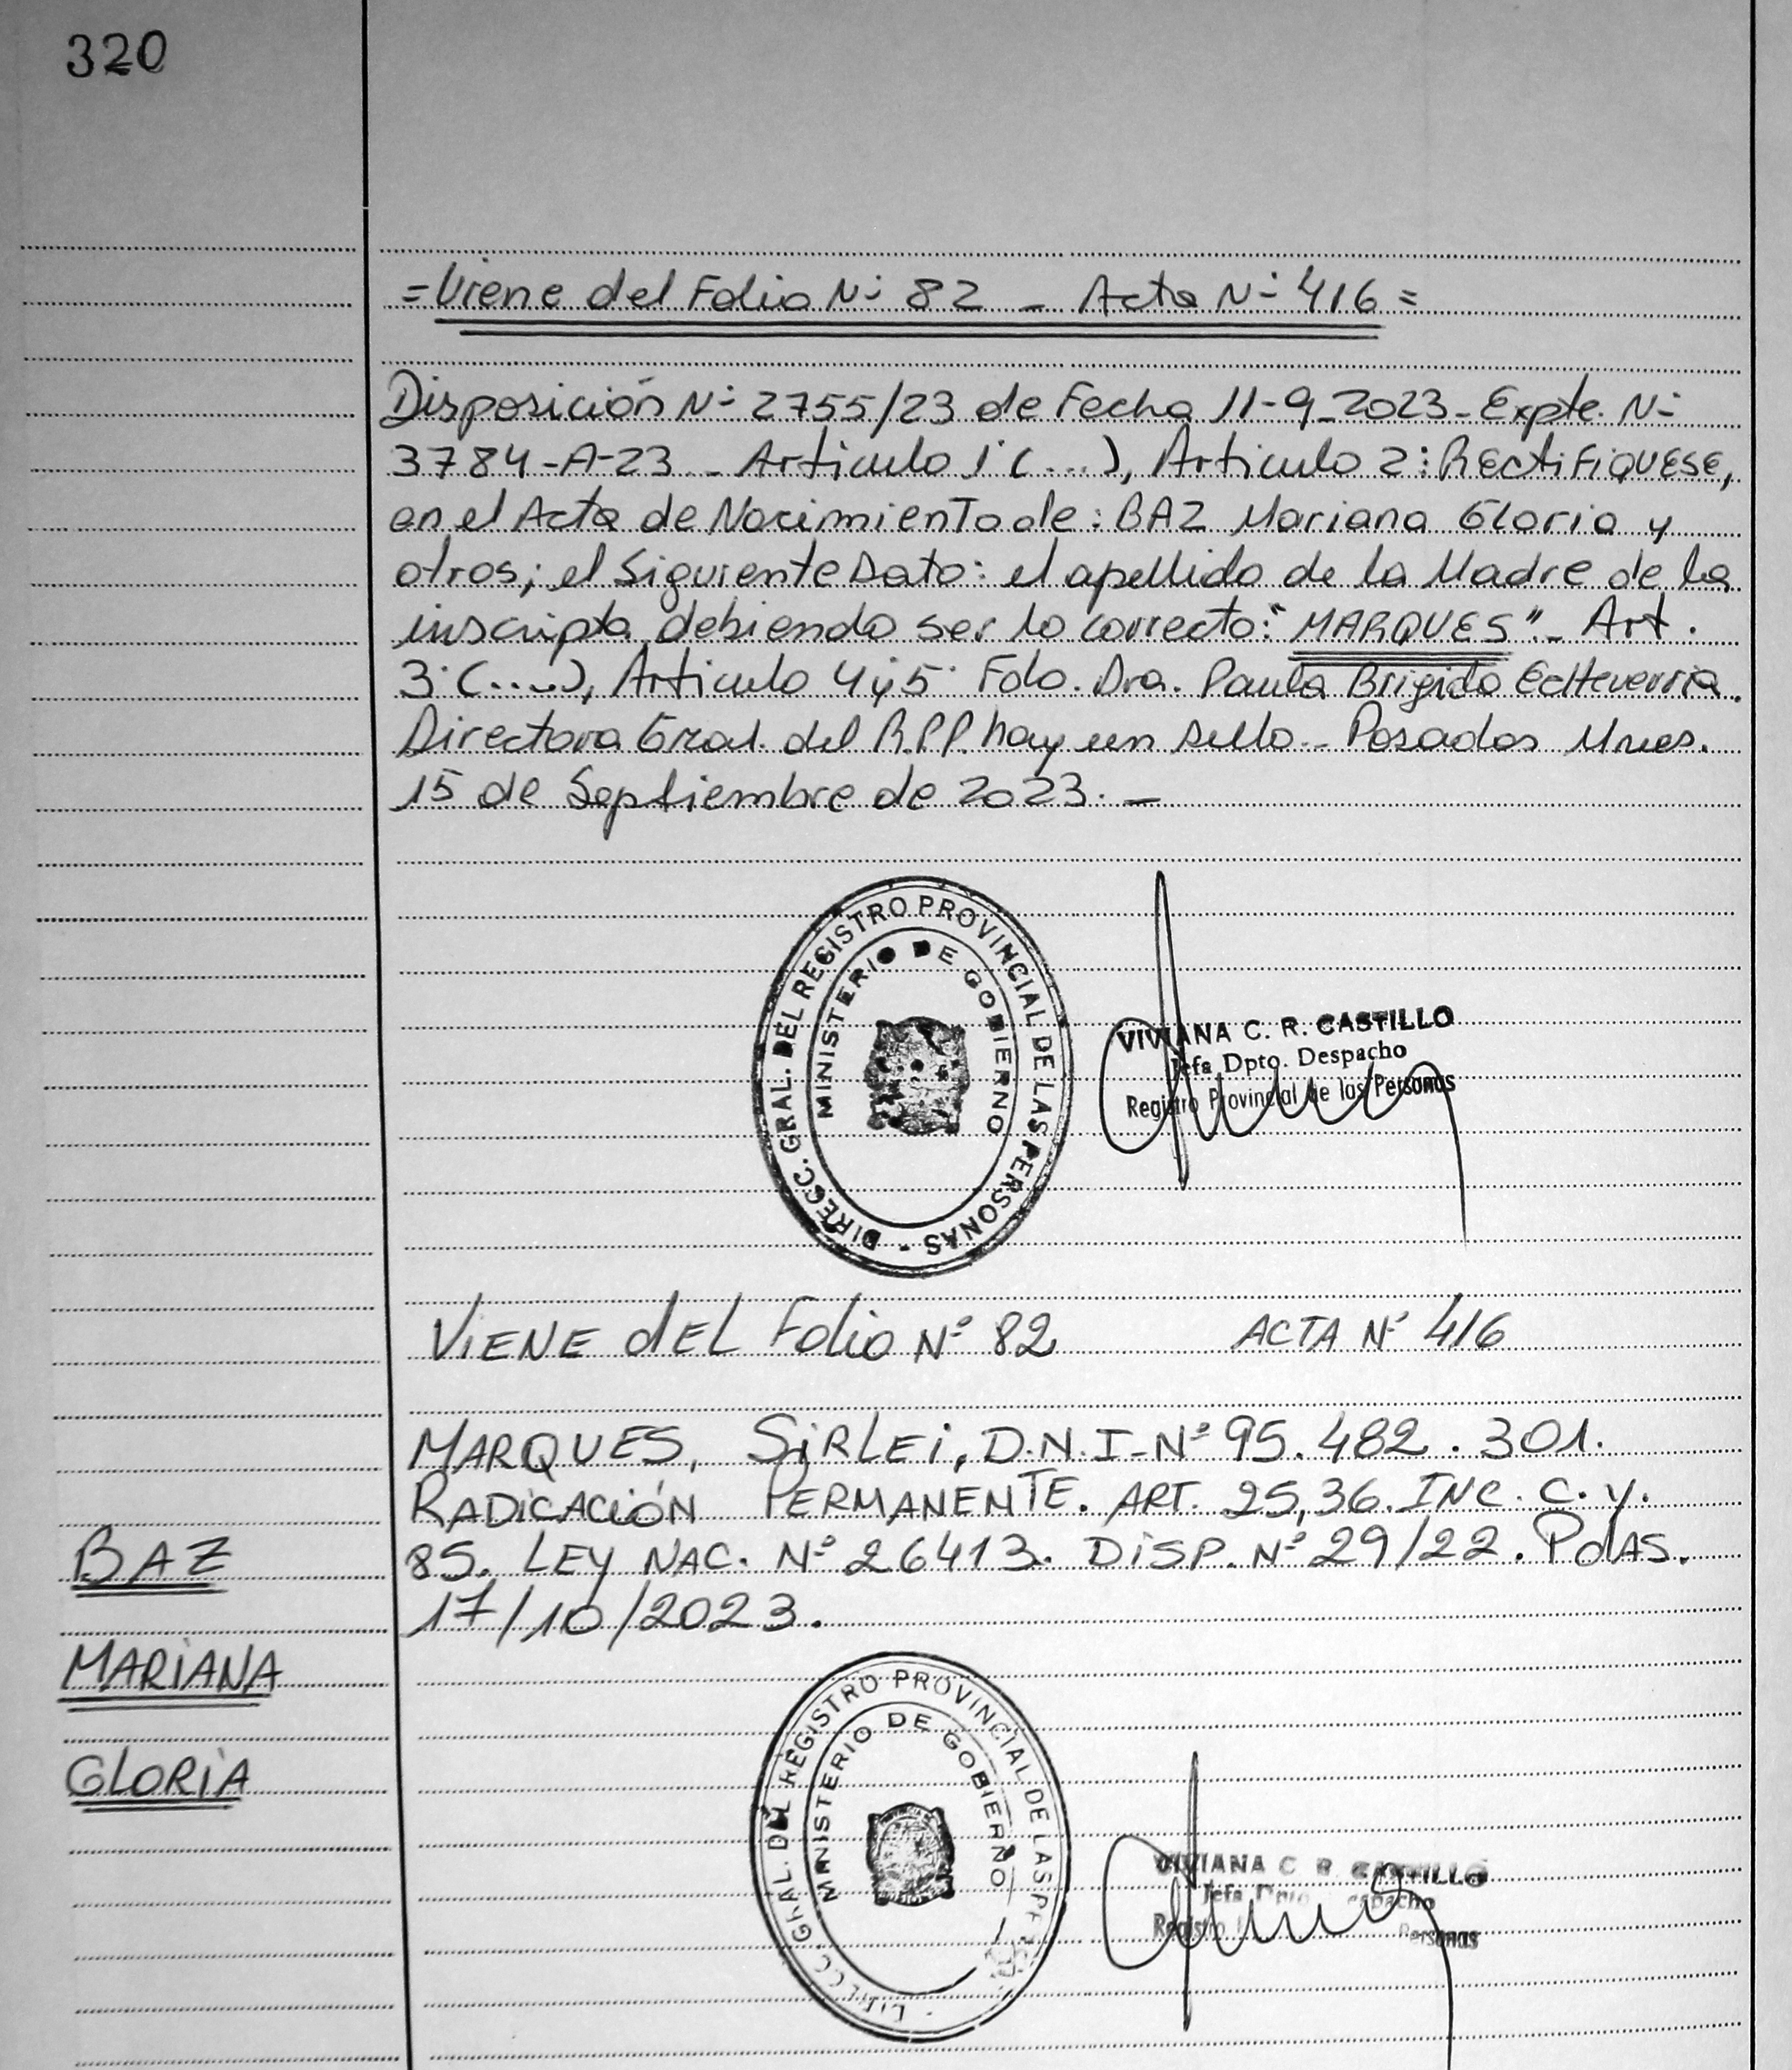 320
=Viene del Folio Nº 82 - Acta Nº 416=
Disposición Nº 2755/23 de Fecha 11-9-2023- Expte. Nº
3784-A-23 - Articulo 1º (...), Articulo 2: Rectifiquese,
en el Acta de Nacimiento de: BAZ Mariana Gloria y
otros; el Siguiente Dato: el apellido de la Madre de la
inscripta debiendo ser lo correcto: "MARQUES".- Art.
3º(....), Articulo 4y5º Fdo. Dra. Paula Brigida Echeverria.
Directora Gral. del R.P.P. hay un sello.- Posadas Mnes.
15 de Septiembre de 2023. -
DIRECC. GRAL. DEL REGISTRO PROVINCIAL DE LAS PERSONAS -
MINISTERIO DE GOBIERNO
VIVIANA C. R. CASTILLO
Jefa Dpto. Despacho
Registro Provincial de las Personas
VIENE dEL Folio Nº 82 ACTA Nº 416
MARQUES, SiRLEi, D.N.I-Nº 95.482.301.
RADiCACiÓN PERMANENTE. ART. 25,36. INC. C. y.
BAZ
85. LEY NAC. Nº 26413. DiSP. Nº 29/22. PdAS.
17/10/2023.
MARiANA
GLORiA
GRAL. DEL REGISTRO PROVINCIAL DE LAS
MINISTERIO DE GOBIERNO
VIVIANA C. R. CASTILLO
Jefa Dpto. Despacho
Registro Personas